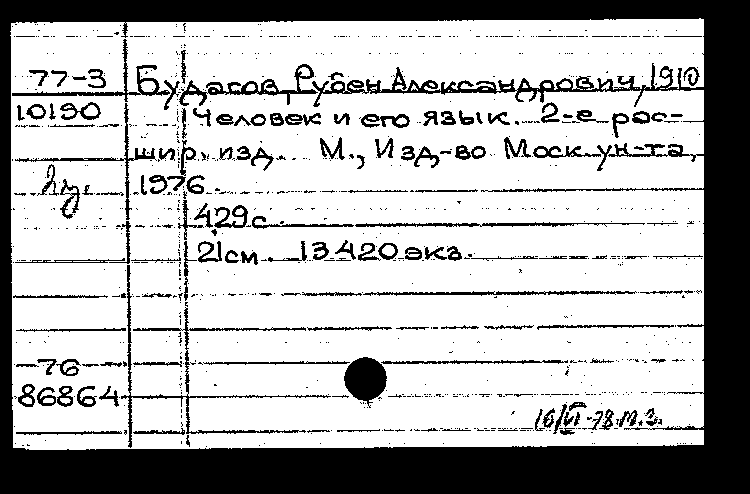 77-3 Будагов, Рубен Александрович, 1910
10190 Человек и его язык. 2-е рас-
шир. изд. М., Изд-во Моск ун-та,
1976.
429с.
21см. 13420 экз.
76
86864
16/VI-78.